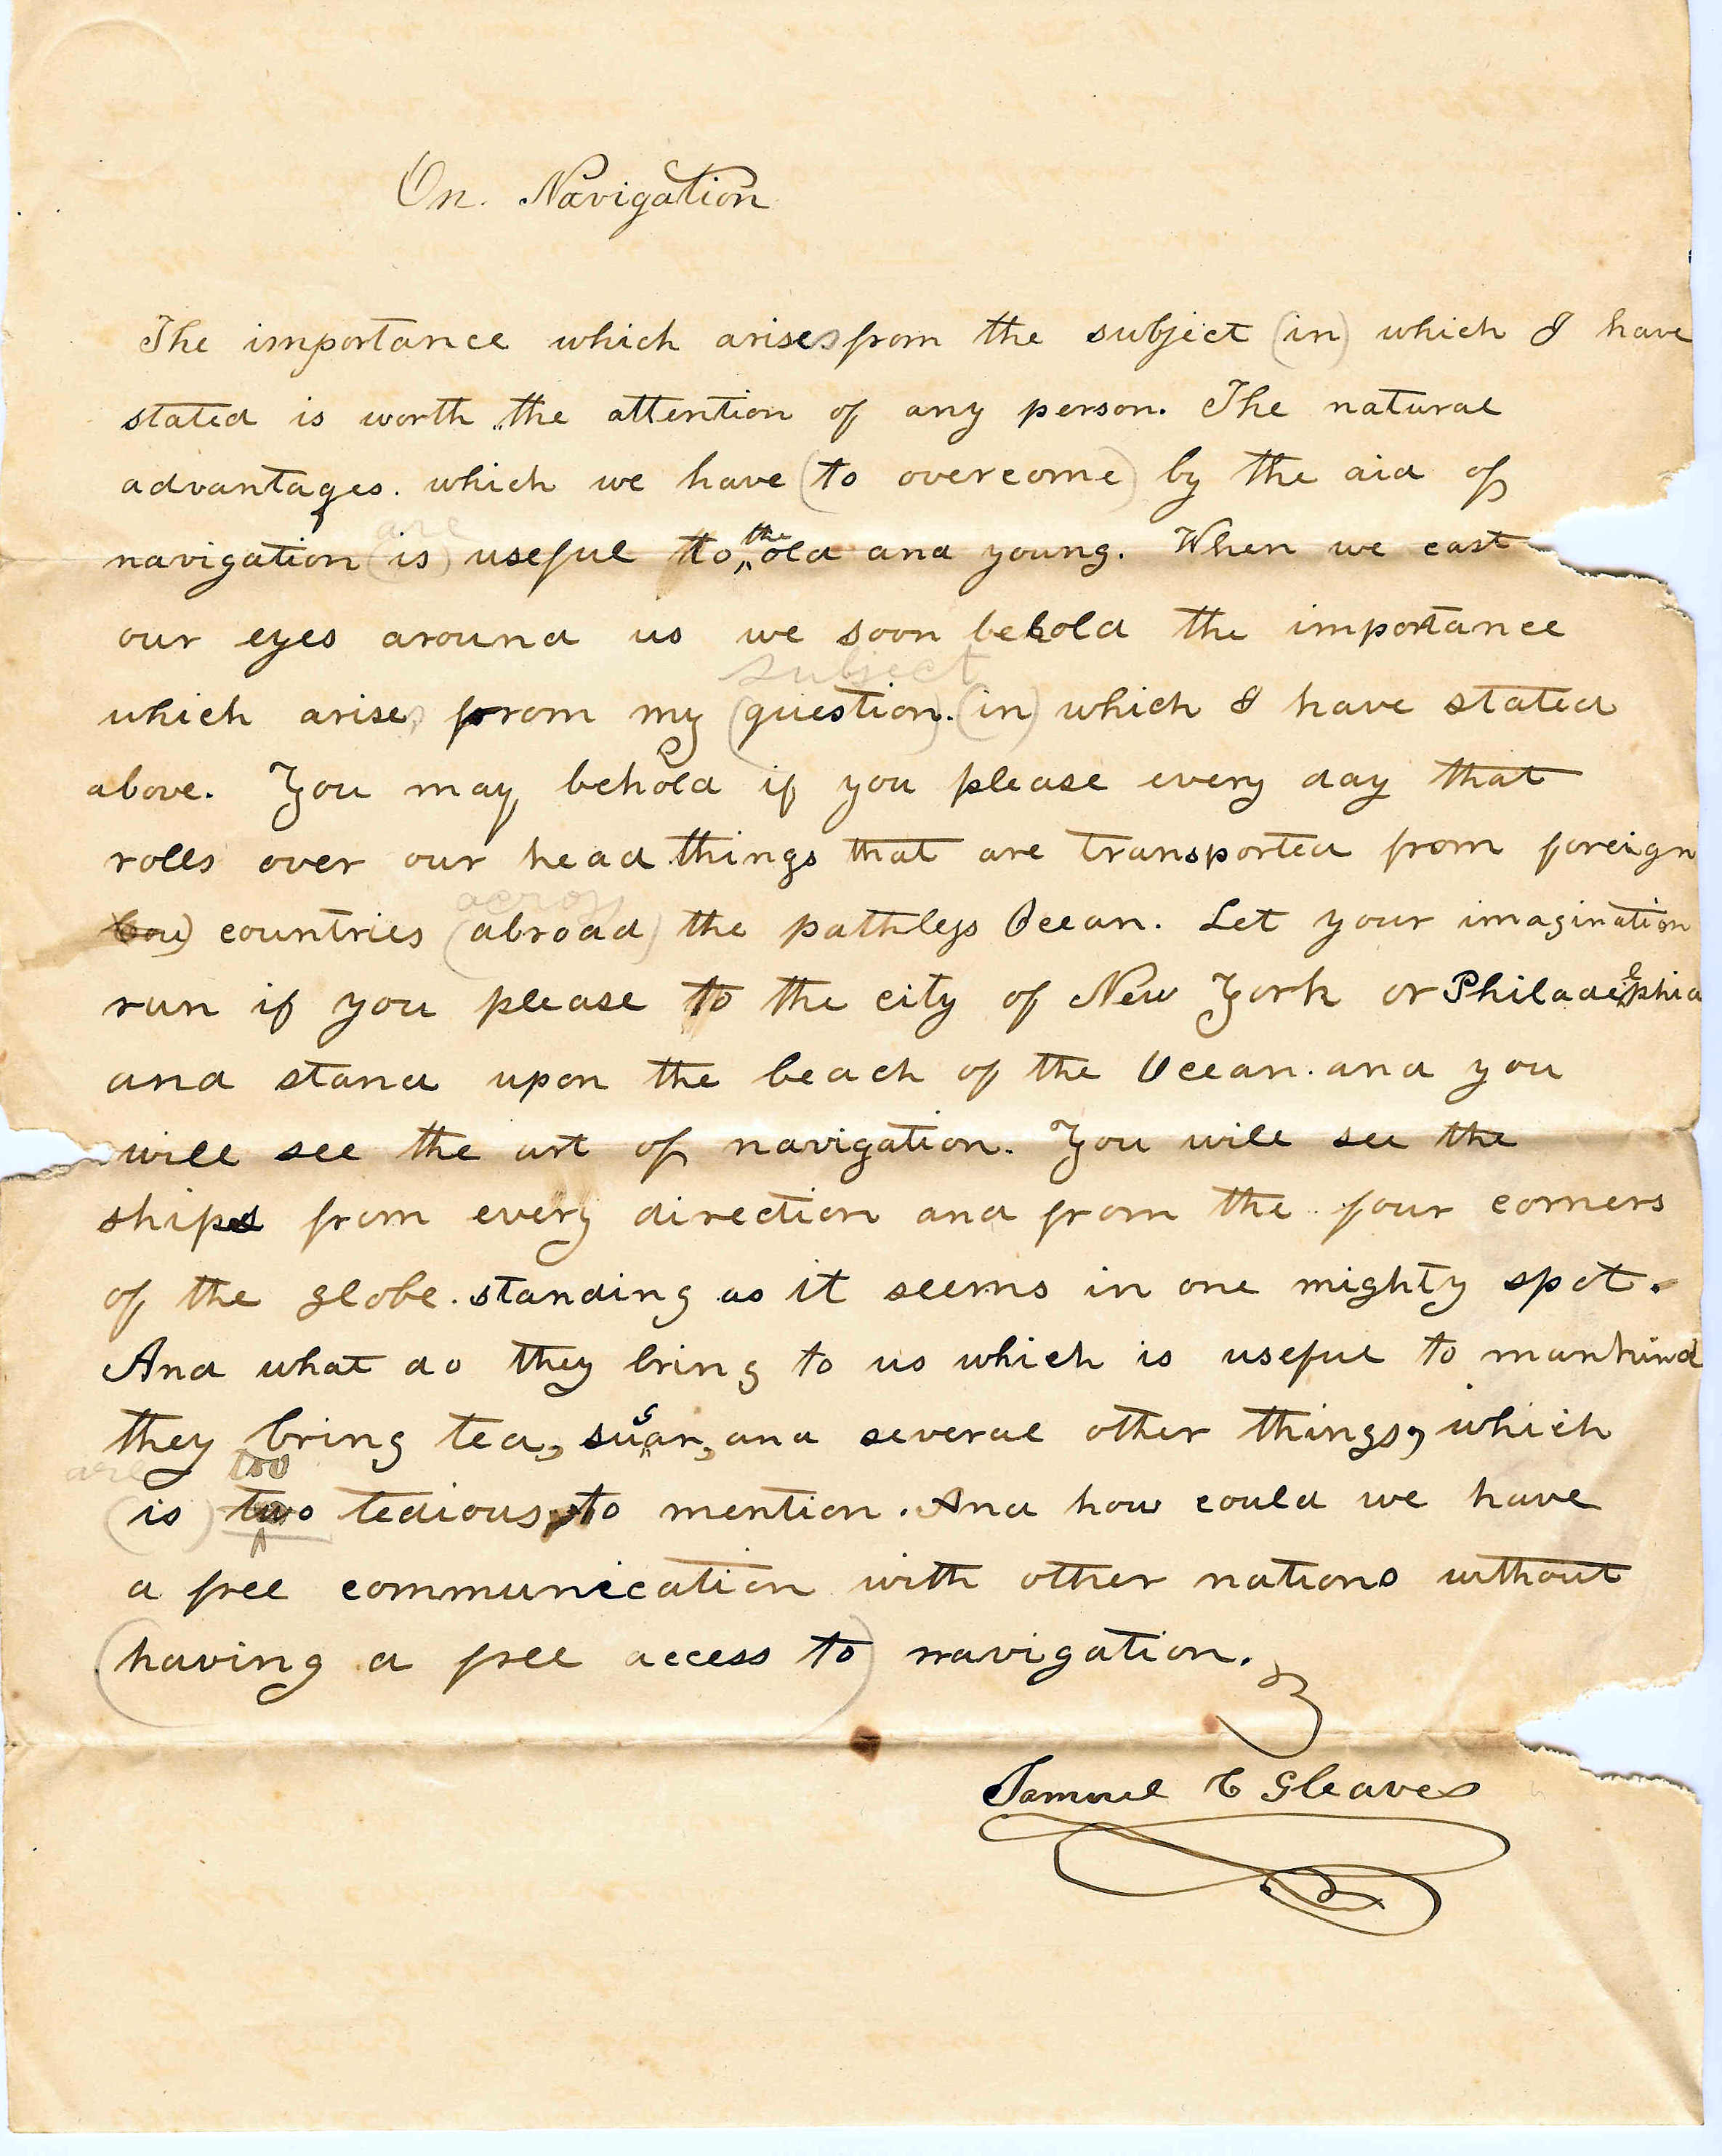 On. Navigation
The importance which arises from the subject (in) which I have
stated is worth the attention of any person. The natural
advantages. which we have (to overcome) by the aid of
are
navigation (is) useful to the old and young. When we cast
our eyes around us we soon behold the importance
subject
which arises from my (question.) (in) which I have stated
above. You may behold if you please every day that
rolls over our head things that are transported from foreign
across
countries (abroad) the pathless Ocean. Let your imagination
run if you please to the city of New York or Philadelphia
and stand upon the beach of the Ocean. and you
will see the art of navigation. You will see the
ships from every direction and from the four corners
of the globe. standing as it seems in one mighty spot.
And what do they bring to us which is useful to mankind
they bring tea, sugar, and several other things, which
are too
(is) two tedious to mention. And how could we have
a free communication with other nations without
(having a free access to) navigation.
Samuel C Gleaves